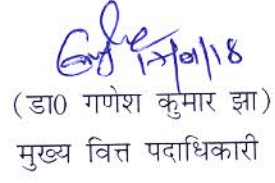 17/01/18
(डा0 गणेश कुमार झा)
मुख्य वित्त पदाधिकारी